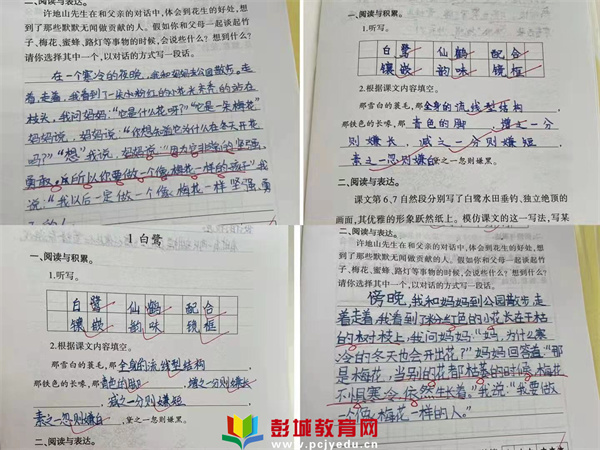 二、阅读与表达。
许地山先生在和父亲的对话中，体会到花生的好处，想
到了那些默默无闻做贡献的人。假如你和父母一起谈起竹
子、梅花、蜜蜂、路灯等事物的时候，会说些什么？想到什么？
请你选择其中一个，以对话的方式写一段话。
在一个寒冷的夜晚，我和妈妈去公园散步。走
着，走着，我看到了一朵小粉红的小花未来点的站在
枝头，我问妈妈：“它是什么花呀？”“它是一朵梅花”
妈妈说，妈妈说：“你想知道它为什么在冬天开花
吗？”“想”我说，妈妈说：“因为它非常的坚强
勇敢，所以你要做一个像梅花一样的孩子”我
说：“我以后一定做一个像梅花一样坚强、勇
一、阅读与积累。
1.听写。
白鹭 仙鹤 配合
镶嵌 韵味 镜框
2.根据课文内容填空。
那雪白的蓑毛，那全身的流线型结构，
那铁色的长喙，那青色的脚，增之一分
则嫌长，减之一分则嫌短，
素之一忽则嫌白，黛之一忽则嫌黑。
二、阅读与表达。
课文第6、7自然段分别写了白鹭水田垂钓、独立绝顶的
画面，其优雅的形象跃然纸上。模仿课文的这一写法，写某
1 白鹭
一、阅读与积累。
1.听写。
白鹭 仙鹤 配合
镶嵌 韵味 镜框
2.根据课文内容填空。
那雪白的蓑毛，那全身的流线型结构，
那铁色的长喙，那青色的脚，增之一分则嫌长，
减之一分则嫌短，
素之一忽则嫌白，黛之一忽则嫌黑。
二、阅读与表达。
二、阅读与表达。
许地山先生在和父亲的对话中，体会到花生的好处，想
到了那些默默无闻做贡献的人。假如你和父母一起谈起竹
子、梅花、蜜蜂、路灯等事物的时候，会说些什么？想到什么？
请你选择其中一个，以对话的方式写一段话。
傍晚，我和妈妈到公园散步，走
着走着，我看到了粉红色的小花长在干枯
的树枝上，我问妈妈“妈，为什么寒
冷的冬天也会开出花？”妈妈回答着：“那
是梅花，当别的花都枯萎的时候，梅花
不惧寒冷，依然生长着。”我说：“我要做
一个像梅花一样的人。”
彭城教育网
www.pcjyedu.cn